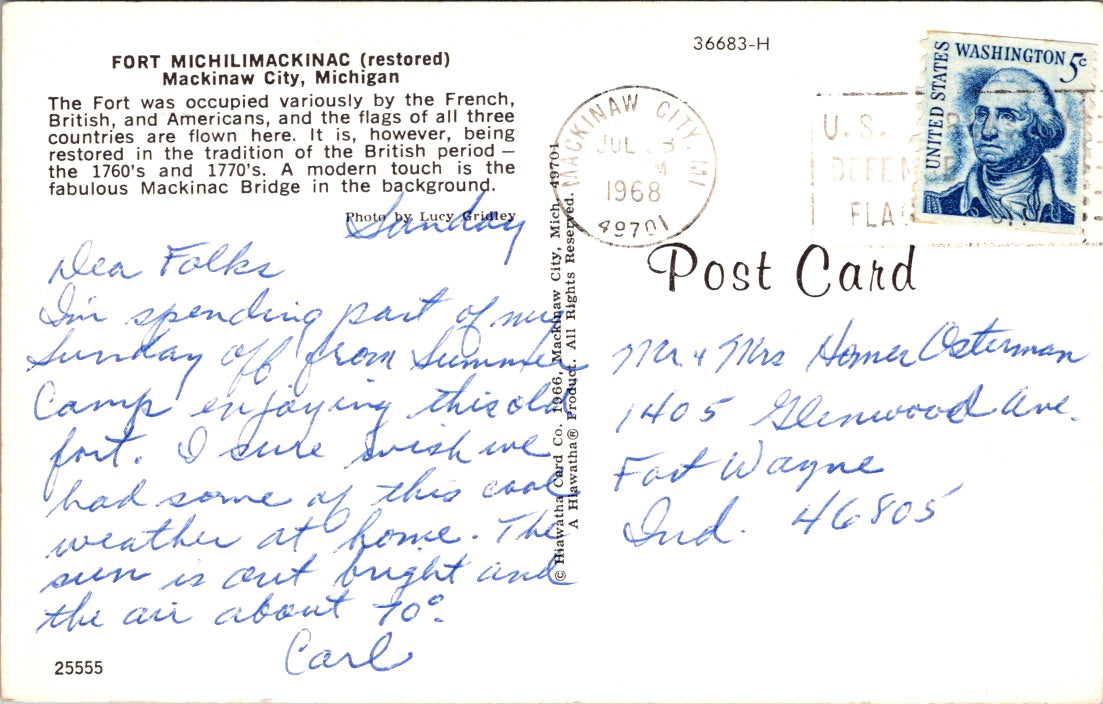 FORT MICHILIMACKINAC (restored)
Mackinaw City, Michigan
The Fort was occupied variously by the French,
British, and Americans, and the flags of all three
countries are flown here. It is, however, being
restored in the tradition of the British period —
the 1760's and 1770's. A modern touch is the
fabulous Mackinac Bridge in the background.
Photo by Lucy Gridley
Sunday
Dea Folks
I'm spending part of my
Sunday off from Summer
Camp enjoying this old
fort. I sure wish we
had some of this cool
weather at home. The
sun is out bright and
the air about 70°.
Carl
25555
© Hiawatha Card Co. 1966, Mackinaw City, Mich. 49701
A Hiawatha® Product. All Rights Reserved.
36683-H
MACKINAW CITY, MI
JUL
M
1968
49701
U.S.
FLAG
UNITED STATES
WASHINGTON 5c
Post Card
Mr. & Mrs Homer Osterman
1405 Glenwood Ave.
Fort Wayne
Ind. 46805